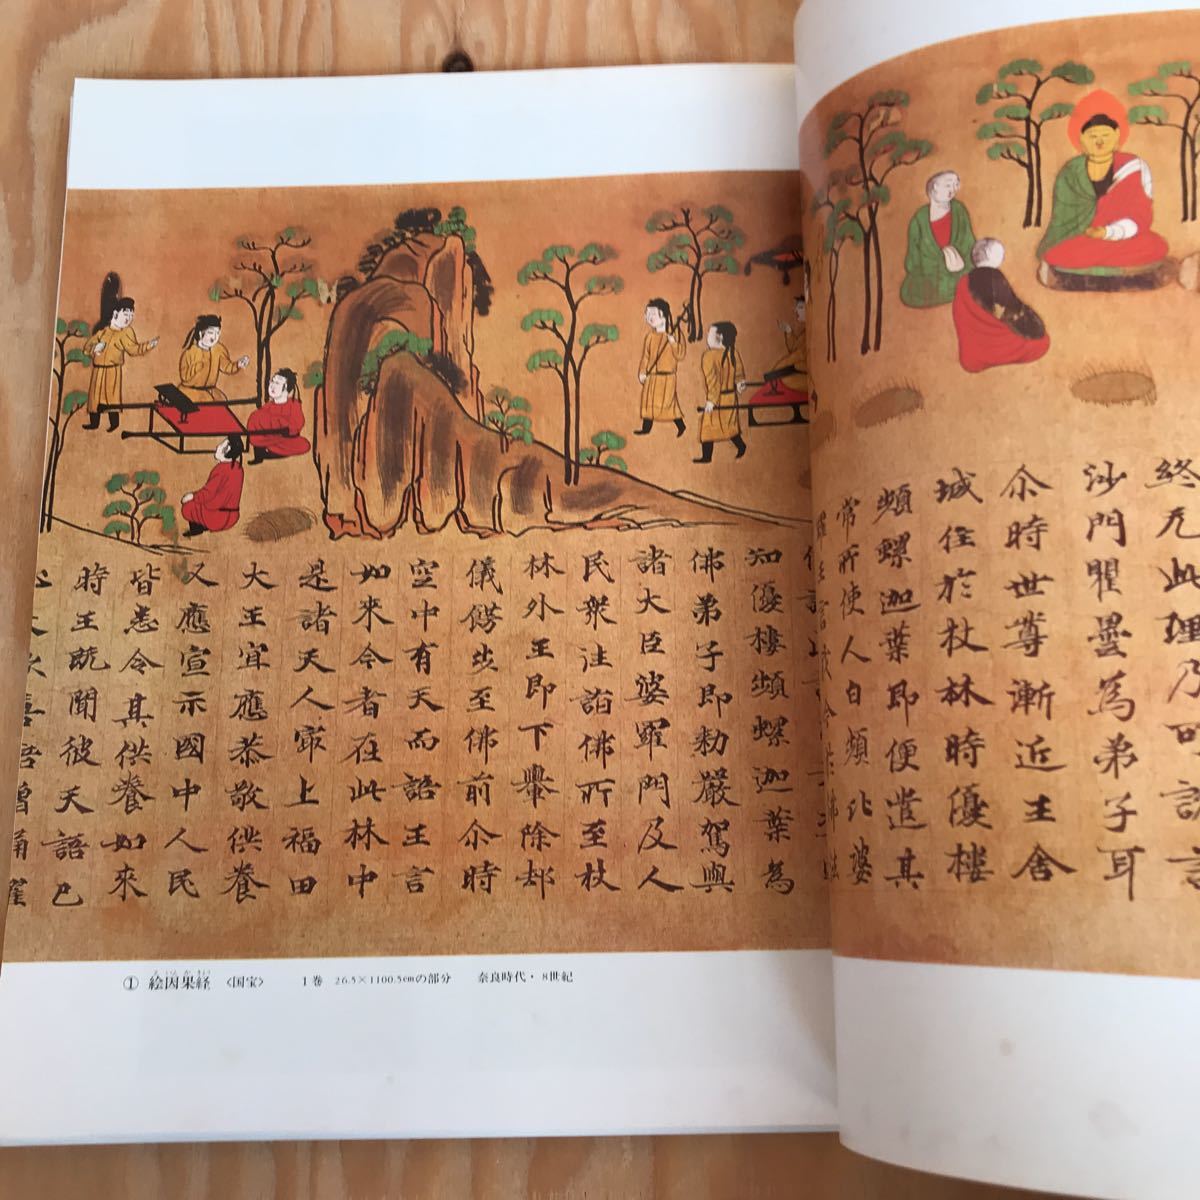 終无此理乃可語言
沙門瞿曇為弟子耳
尒時世尊漸近王舍
城住於杖林時優樓
頻螺迦葉即便遣其
常所使人白頻比婆
知優樓頻螺迦葉為
佛弟子即勑嚴駕與
諸大臣婆羅門及人
民衆往詣佛所至杖
林外王即下轝除却
儀餝步至佛前尒時
空中有天而語王言
如來今者在此林中
是諸天人㝡上福田
大王宜應恭敬供養
又應宣示國中人民
皆悉令其供養如來
時王既聞彼天語已
① 絵因果経 〈国宝〉 1巻 26.5×1100.5cmの部分 奈良時代・8世紀